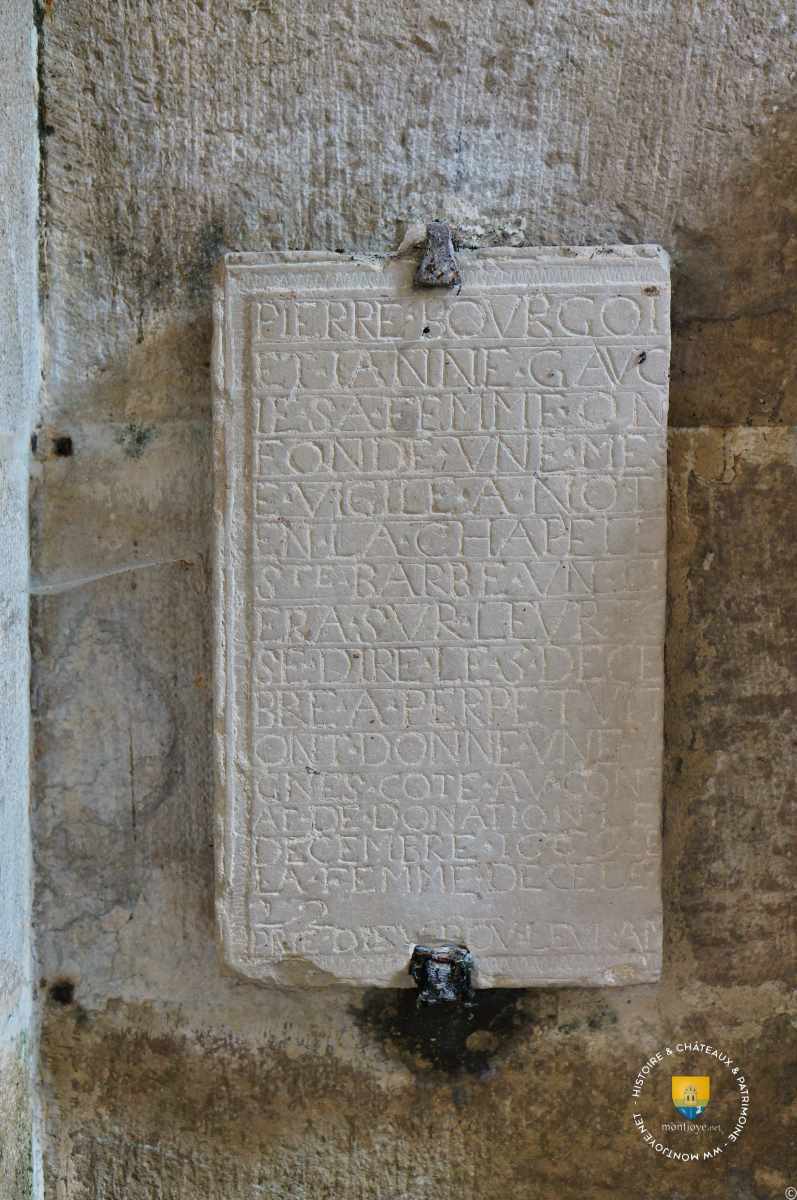 PIERRE·BOVRGOI
ET·IANNE·GAVC
IE·SA·FEMME·ON
FONDE·VNE·MES
E·VIGILE·A·NOT
EN·LA·CHAPELL
STE·BARBE·VN
ERA·SVR·LEVR
SE·DIRE·LE·3·DECE
BRE·A·PERPETVIT
ONT·DONNE·VNE
GNES·COTE·AV·CON
AT·DE·DONATION
DECEMBRE
LA·FEMME·DECEDE
PRIE·DIEV·POV·LEVR·AM
HISTOIRE & CHÂTEAUX & PATRIMOINE - WW.MONTJOYE.NET -
montjoye.net
©